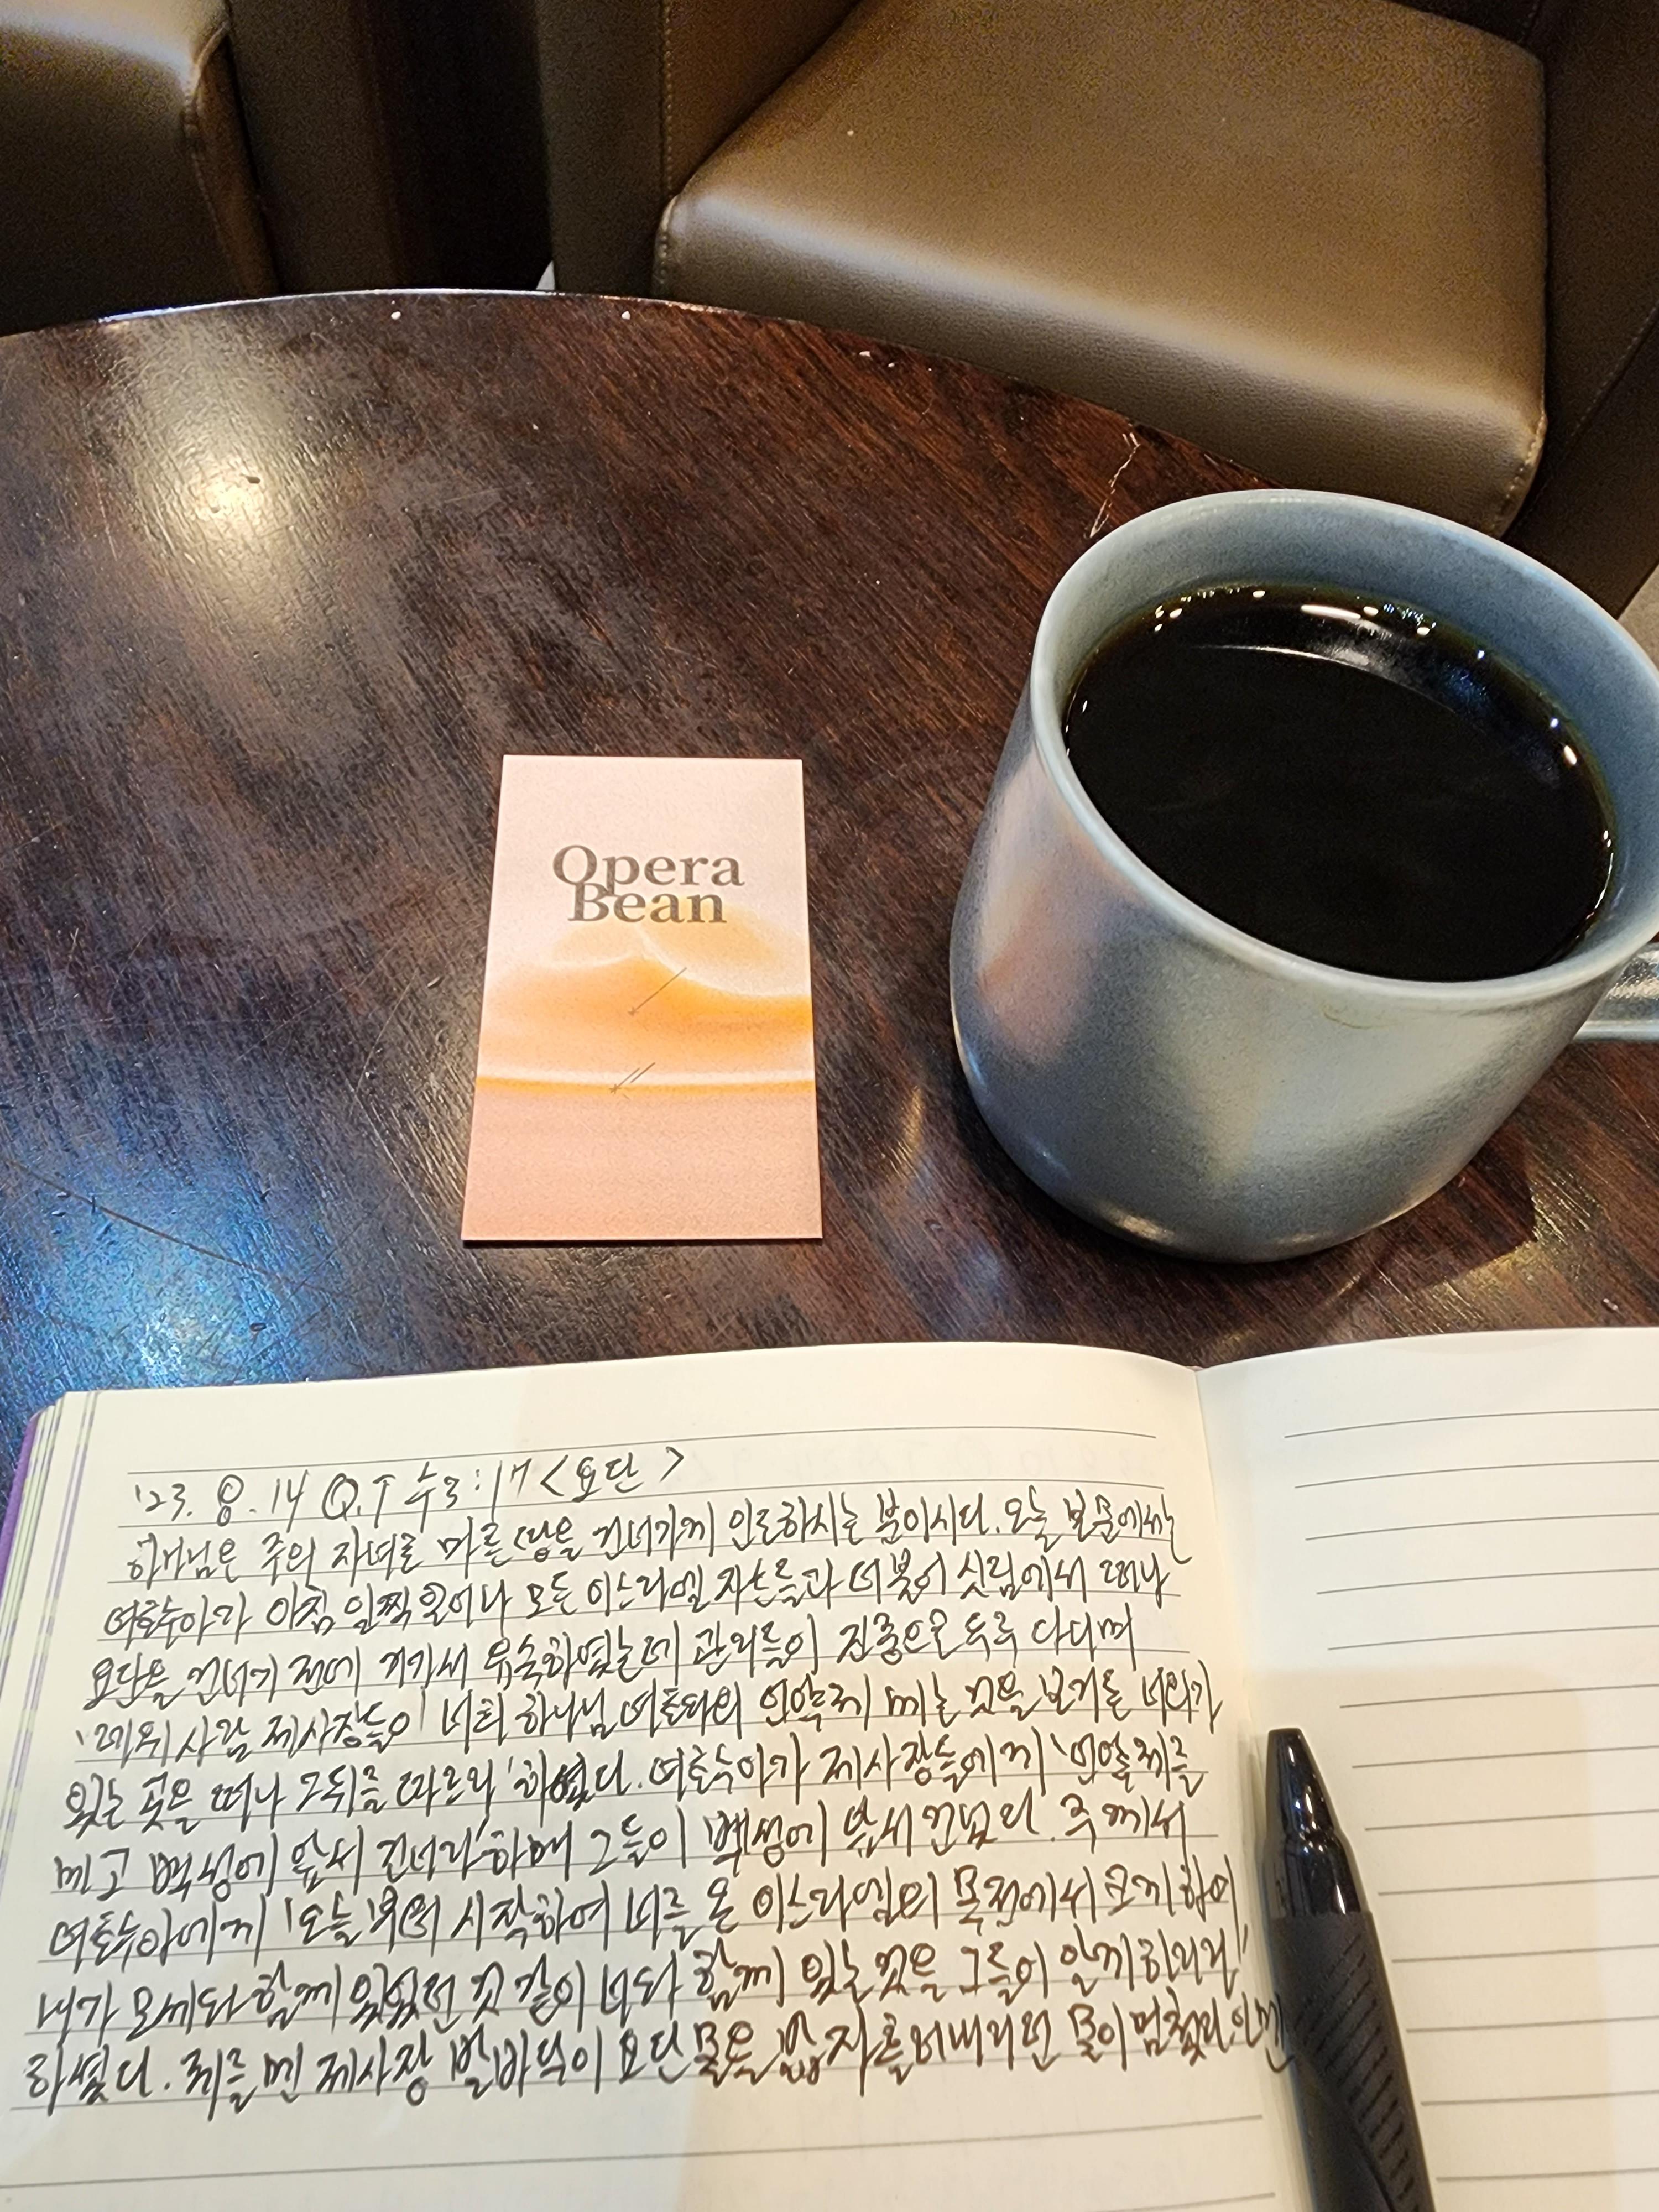 Opera
Bean
'23. 8. 14 Q.T 수3:17 <요단>
하나님은 주의 자녀로 마른 땅을 건너가게 인도하시는 분이시다. 오늘 본문에서는
여호수아가 아침 일찍 일어나 모든 이스라엘 자손들과 더불어 싯딤에서 떠나
요단을 건너기 전에 거기서 유숙하였는데 관리들이 진중으로 두루 다니며
'레위 사람 제사장들이 너희 하나님 여호와의 언약궤 메는 것을 보거든 너희가
있는 곳을 떠나 그 뒤를 따르라' 하였다. 여호수아가 제사장들에게 '언약궤를
메고 백성에 앞서 건너라' 하매 그들이 백성에 앞서 건넜다. 주께서
여호수아에게 '오늘부터 시작하여 너를 온 이스라엘의 목전에서 크게 하여
내가 모세와 함께 있었던 것 같이 너와 함께 있는 것을 그들이 알게 하리라'
하셨다. 궤를 멘 제사장 발바닥이 요단 물을 밟자 흘러내리던 물이 멈췄다. 아멘